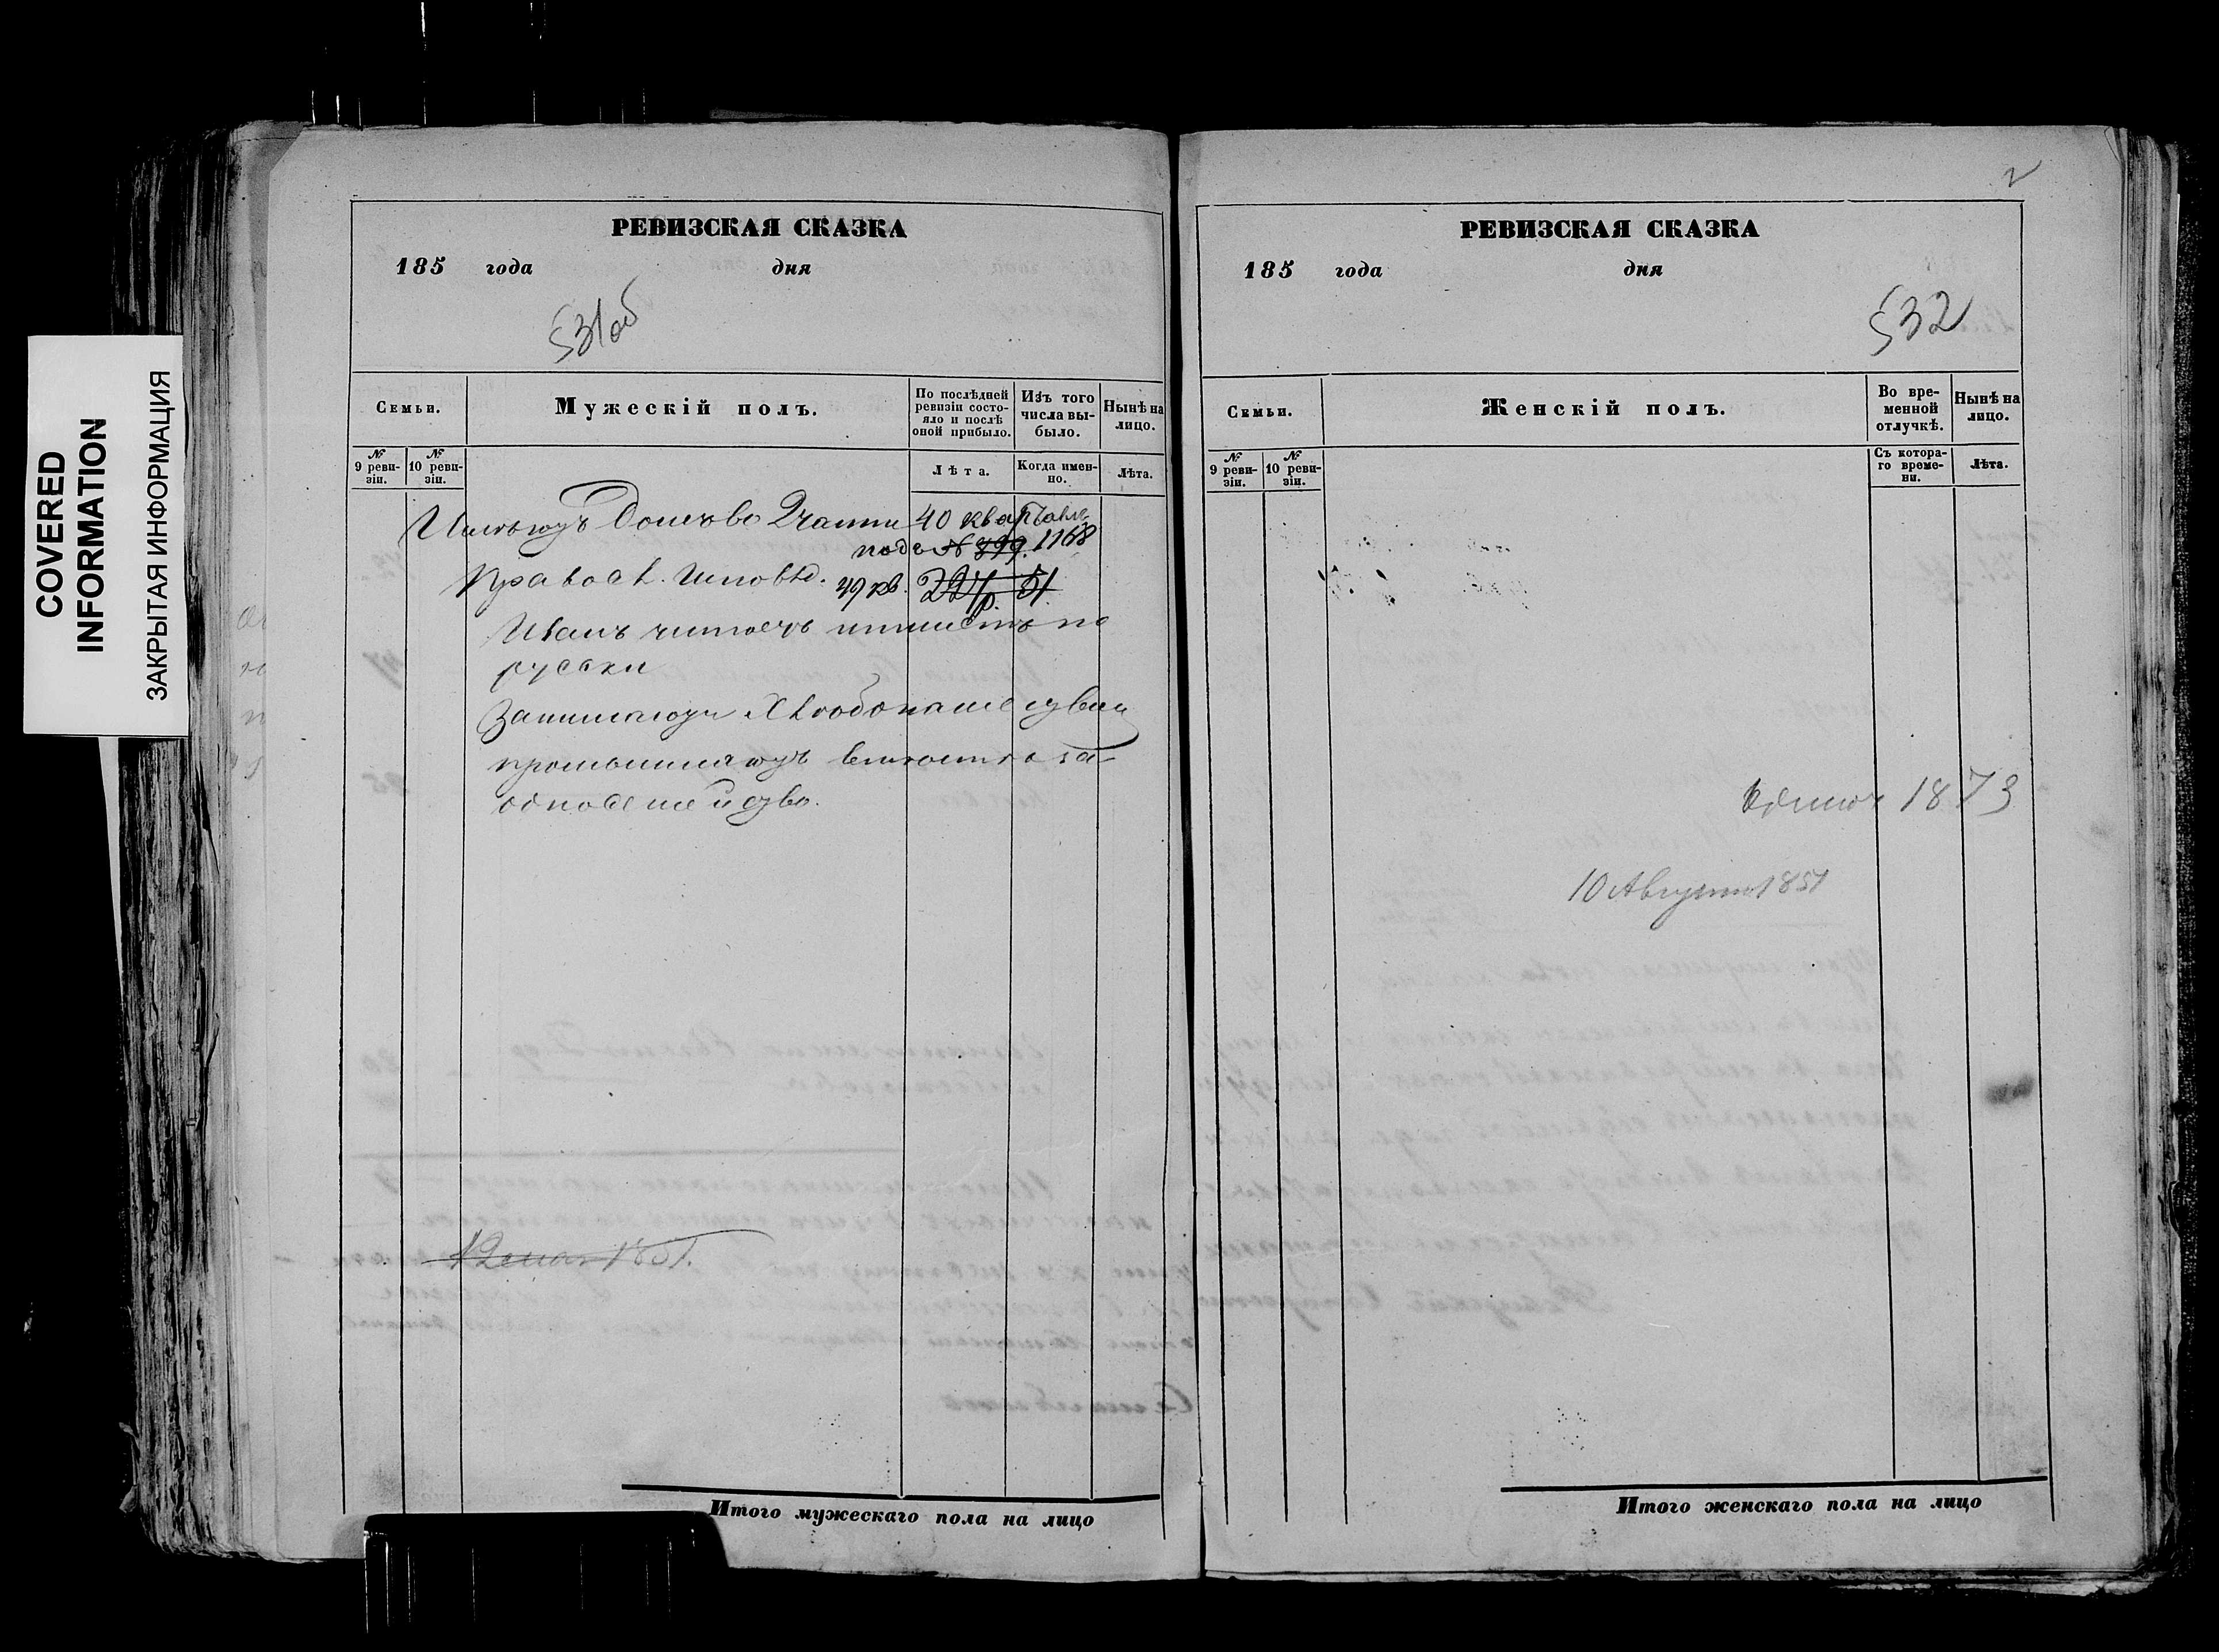 COVERED
INFORMATION
ЗАКРЫТАЯ ИНФОРМАЦИЯ
РЕВИЗСКАЯ СКАЗКА
185 года дня
531об
Семьи.
Мужескій полъ.
По послѣдней ревизіи состояло и послѣ оной прибыло.
Изъ того числа выбыло.
Нынѣ на лицо.
№ 9 ревизіи.
№ 10 ревизіи.
Лѣта.
Когда именно.
Лѣта.
Имѣютъ Домъ во 2 части 40 квартала
подъ № 899. 1168
Правосл. Исповѣд. 49 кв. 227р. 51
Иванъ читаетъ и пишетъ по
русски
Занимаются Хлѣбопашествомъ
12 мая 1851.
Итого мужескаго пола на лицо
2
РЕВИЗСКАЯ СКАЗКА
185 года дня
532
Семьи.
Женскій полъ.
Во временной отлучкѣ.
Нынѣ на лицо.
№ 9 ревизіи.
№ 10 ревизіи.
Съ котораго времени.
Лѣта.
1873
10 Августа 1851
Итого женскаго пола на лицо